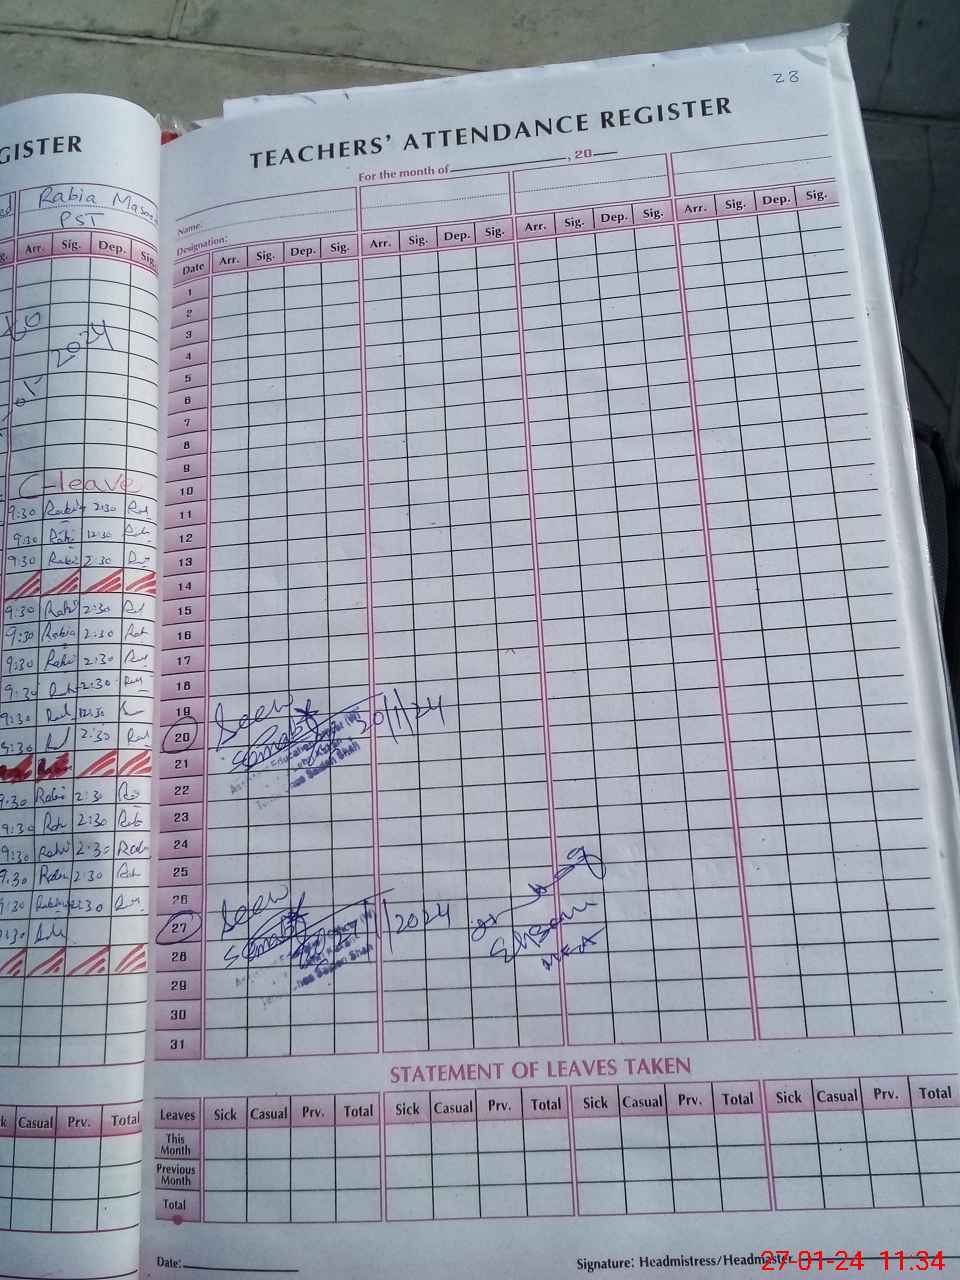 28
GISTER
TEACHERS' ATTENDANCE REGISTER
For the month of , 20
Rabia
PST
Name:
Designation:
Arr. Sig. Dep. Sig.
Date Arr. Sig. Dep. Sig. Arr. Sig. Dep. Sig. Arr. Sig. Dep. Sig. Arr. Sig. Dep. Sig.
1
2
3
4
5
6
7
8
9
10
11
12
13
14
15
16
17
18
19
20
21
22
23
24
25
26
27
28
29
30
31
2024
C-leave
9:30 Rabi 2:30
9:30 Rabi 12:30
9:30 Rabi 2:30
9:30 Rabi 2:30
9:30 Rabia 2:30
9:30 Rabi 2:30
9:30 2:30
9:30 12:30
2:30
9:30 Rabi 2:30
9:30 Rab 2:30
9:30 Rabi 2:30
9:30 Rabi 2:30
9:30 2:30
Seen
20/1/24
Seen
2024
MEA
STATEMENT OF LEAVES TAKEN
Casual Prv. Total
Leaves Sick Casual Prv. Total Sick Casual Prv. Total Sick Casual Prv. Total Sick Casual Prv. Total
This Month
Previous Month
Total
Date:
Signature: Headmistress/Headmaster
27-01-24 11:34